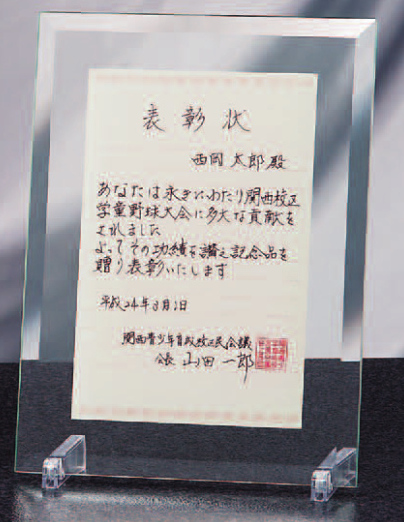 表彰状
西岡太郎殿
あなたは永きにわたり関西校区
学童野球大会に多大な貢献を
されました
よってその功績を讃え記念品を
贈り表彰いたします
平成24年3月1日
関西青少年育成校区民会議
会長 山田一郎